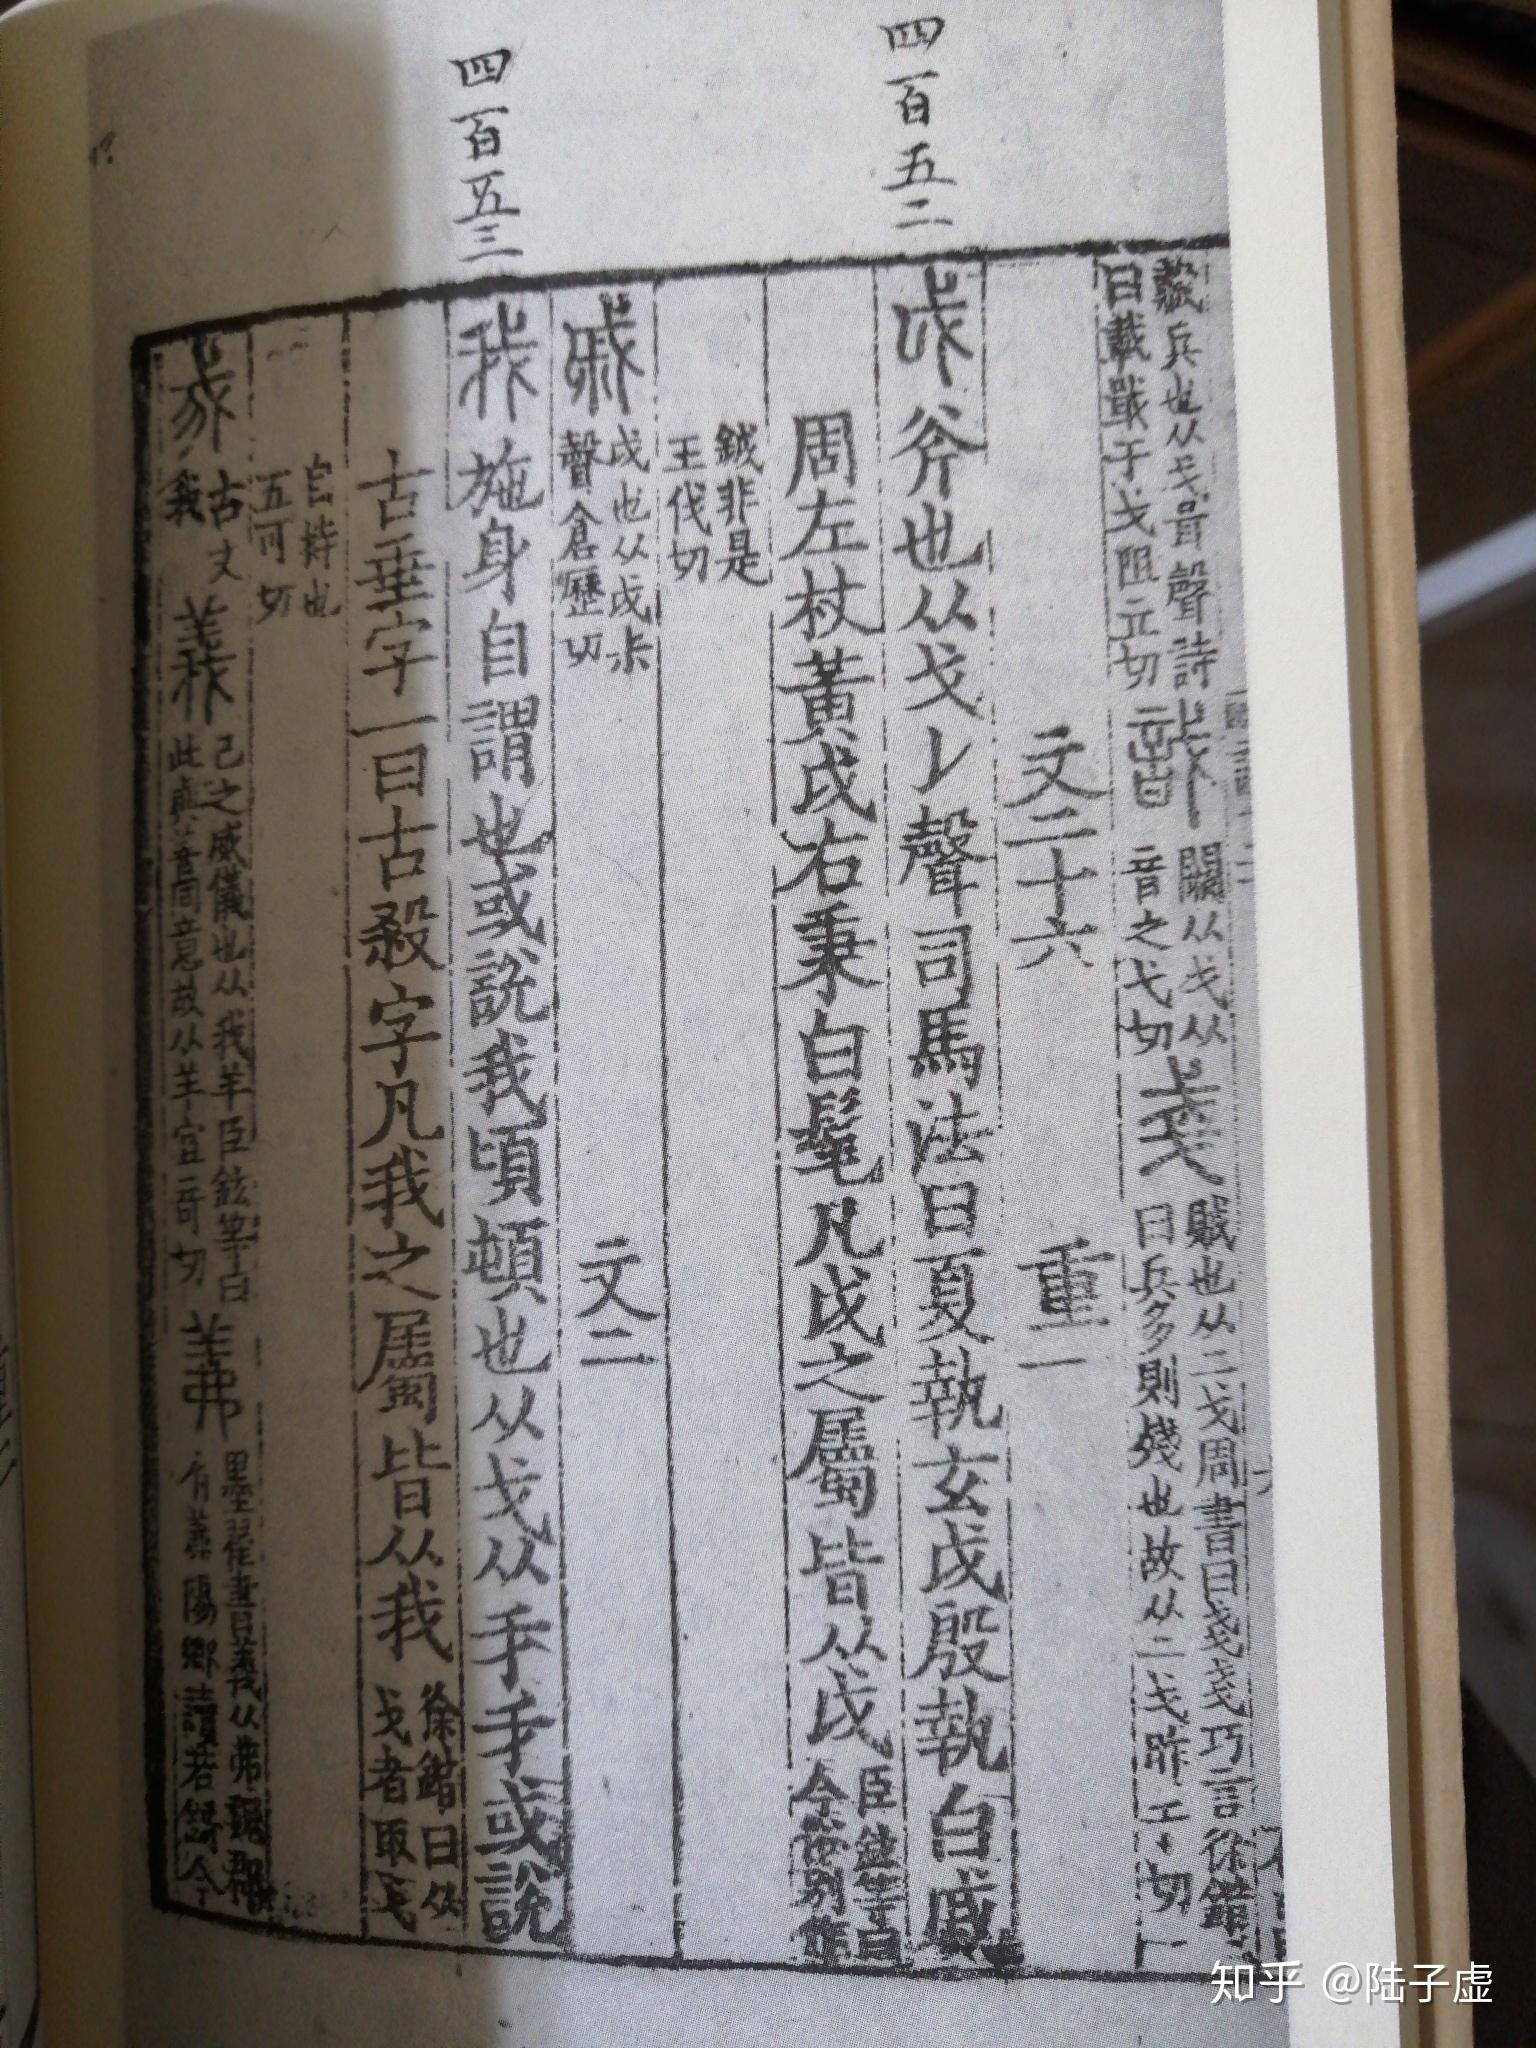 四百五二
四百五三
藏兵也从戈咠聲詩
曰載戢于戈阻立切
𢧵
闕从戈从
音之弋切
戔
賊也从二戈周書曰戔戔巧言徐鍇
曰兵多則殘也故从二戈昨干切
文二十六 重一
戉 斧也从戈𠄌聲司馬法曰夏執玄戉殷執白戚
周左杖黃戉右秉白髦凡戉之屬皆从戉
臣鉉等曰
今俗別作
鉞非是
王伐切
戚
戉也从戉尗
聲倉歷切
文二
我 施身自謂也或說我頃頓也从戈从𠂹𠂹或說
古垂字一曰古殺字凡我之屬皆从我
徐鍇曰从
戈者取戈
自持也
五可切
𢦠
古文
我
義
己之威儀也从我羊臣鉉等曰
此與善同意故从羊宜寄切
羛
墨翟書義从弗魏郡
有羛陽鄉讀若錡今
知乎 @陆子虚